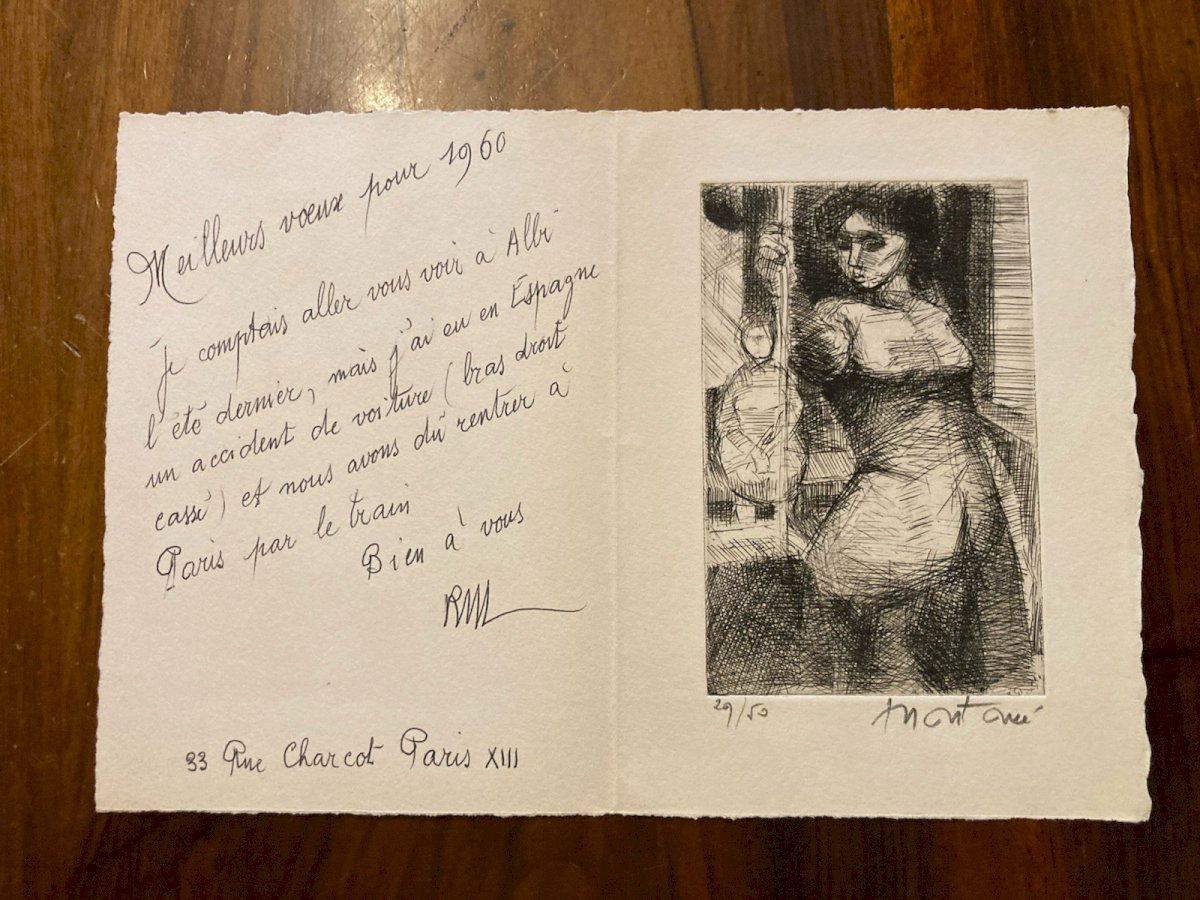 Meilleurs vœux pour 1960
Je comptais aller vous voir à Albi
l'été dernier, mais j'ai eu en Espagne
un accident de voiture (bras droit
cassé) et nous avons dû rentrer à
Paris par le train
Bien à vous
RM
33 Rue Charcot Paris XIII
29/50
Montané